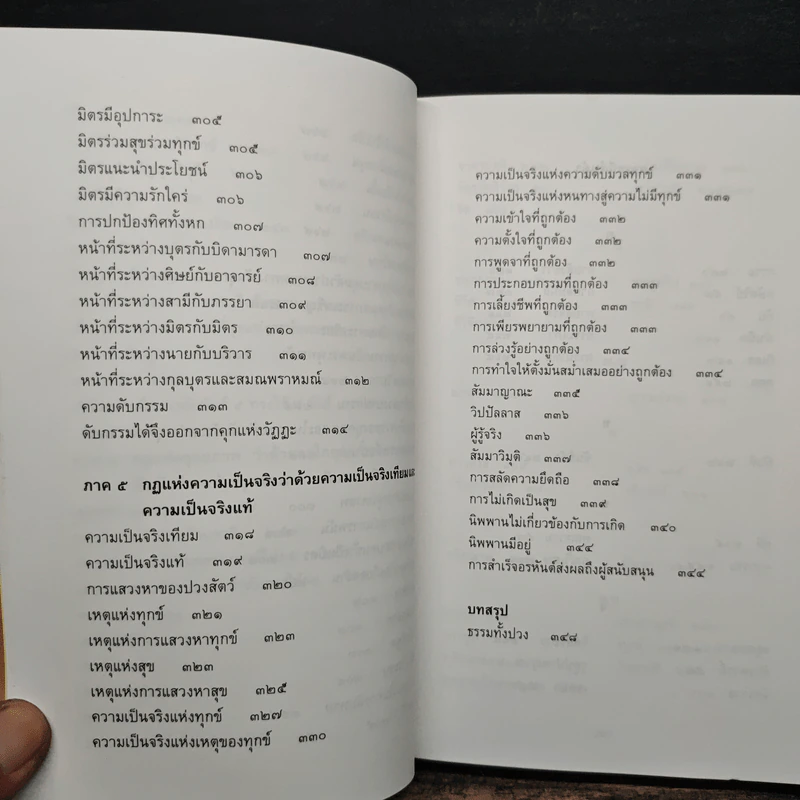 มิตรมีอุปการะ ๓๐๕
มิตรร่วมสุขร่วมทุกข์ ๓๐๕
มิตรแนะนำประโยชน์ ๓๐๖
มิตรมีความรักใคร่ ๓๐๖
การปกป้องทิศทั้งหก ๓๐๗
หน้าที่ระหว่างบุตรกับบิดามารดา ๓๐๗
หน้าที่ระหว่างศิษย์กับอาจารย์ ๓๐๘
หน้าที่ระหว่างสามีกับภรรยา ๓๐๙
หน้าที่ระหว่างมิตรกับมิตร ๓๑๐
หน้าที่ระหว่างนายกับบริวาร ๓๑๑
หน้าที่ระหว่างกุลบุตรและสมณพราหมณ์ ๓๑๒
ความดับกรรม ๓๑๓
ดับกรรมได้จึงออกจากคุกแห่งวัฏฏะ ๓๑๔
ภาค ๕ กฏแห่งความเป็นจริงว่าด้วยความเป็นจริงเทียมและ
ความเป็นจริงแท้
ความเป็นจริงเทียม ๓๑๘
ความเป็นจริงแท้ ๓๑๙
การแสวงหาของปวงสัตว์ ๓๒๐
เหตุแห่งทุกข์ ๓๒๑
เหตุแห่งการแสวงหาทุกข์ ๓๒๓
เหตุแห่งสุข ๓๒๓
เหตุแห่งการแสวงหาสุข ๓๒๕
ความเป็นจริงแห่งทุกข์ ๓๒๗
ความเป็นจริงแห่งเหตุของทุกข์ ๓๓๐
ความเป็นจริงแห่งความดับมวลทุกข์ ๓๓๑
ความเป็นจริงแห่งหนทางสู่ความไม่มีทุกข์ ๓๓๑
ความเข้าใจที่ถูกต้อง ๓๓๒
ความตั้งใจที่ถูกต้อง ๓๓๒
การพูดจาที่ถูกต้อง ๓๓๒
การประกอบกรรมที่ถูกต้อง ๓๓๓
การเลี้ยงชีพที่ถูกต้อง ๓๓๓
การเพียรพยายามที่ถูกต้อง ๓๓๓
การล่วงรู้อย่างถูกต้อง ๓๓๔
การทำใจให้ตั้งมั่นสม่ำเสมออย่างถูกต้อง ๓๓๔
สัมมาญาณะ ๓๓๕
วิปปัลลาส ๓๓๖
ผู้รู้จริง ๓๓๖
สัมมาวิมุติ ๓๓๗
การสลัดความยึดถือ ๓๓๘
การไม่เกิดเป็นสุข ๓๓๙
นิพพานไม่เกี่ยวข้องกับการเกิด ๓๔๐
นิพพานมีอยู่ ๓๔๔
การสำเร็จอรหันต์ส่งผลถึงผู้สนับสนุน ๓๔๔
บทสรุป
ธรรมทั้งปวง ๓๔๘